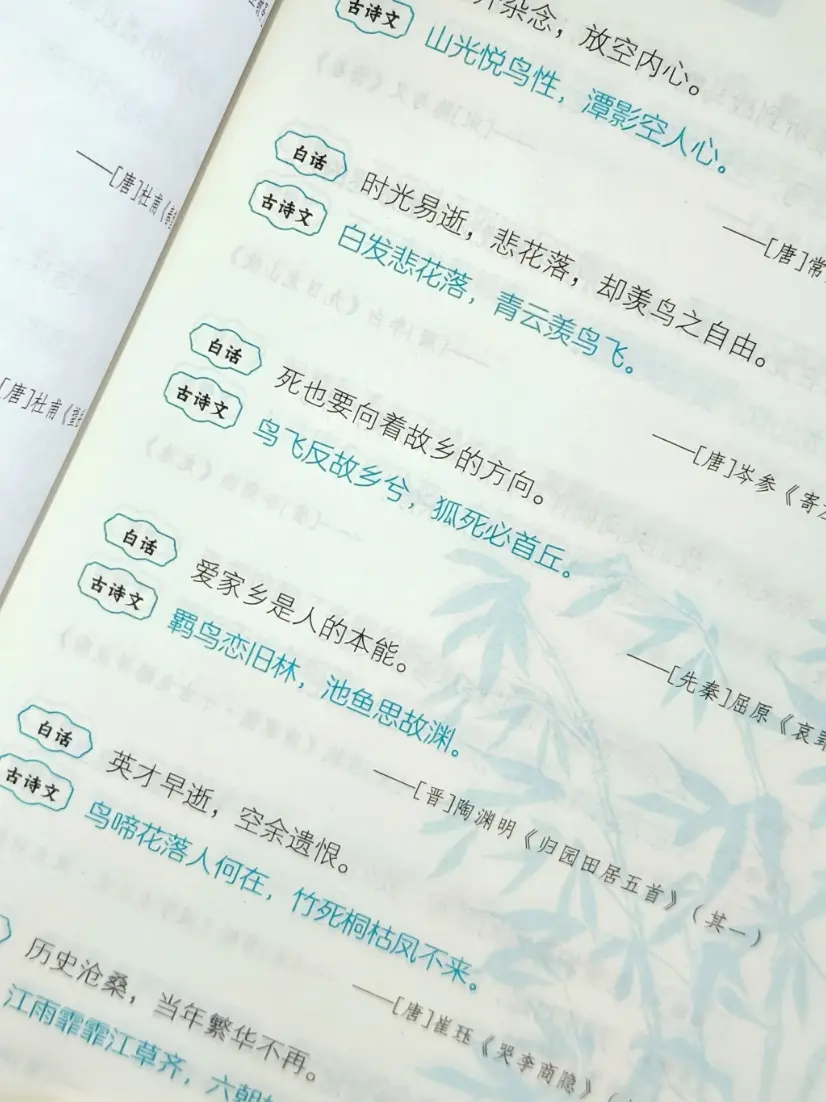 杂念，放空内心。
古诗文
山光悦鸟性，潭影空人心。
——[唐]常
白话
时光易逝，悲花落，却羡鸟之自由。
古诗文
白发悲花落，青云羡鸟飞。
——[唐]岑参《寄左
白话
死也要向着故乡的方向。
古诗文
鸟飞反故乡兮，狐死必首丘。
——[先秦]屈原《哀郢
白话
爱家乡是人的本能。
古诗文
羁鸟恋旧林，池鱼思故渊。
——[晋]陶渊明《归园田居五首》（其一）
白话
英才早逝，空余遗恨。
古诗文
鸟啼花落人何在，竹死桐枯凤不来。
——[唐]崔珏《哭李商隐》（
历史沧桑，当年繁华不再。
江雨霏霏江草齐，六朝
——[唐]杜甫《
[唐]杜甫《